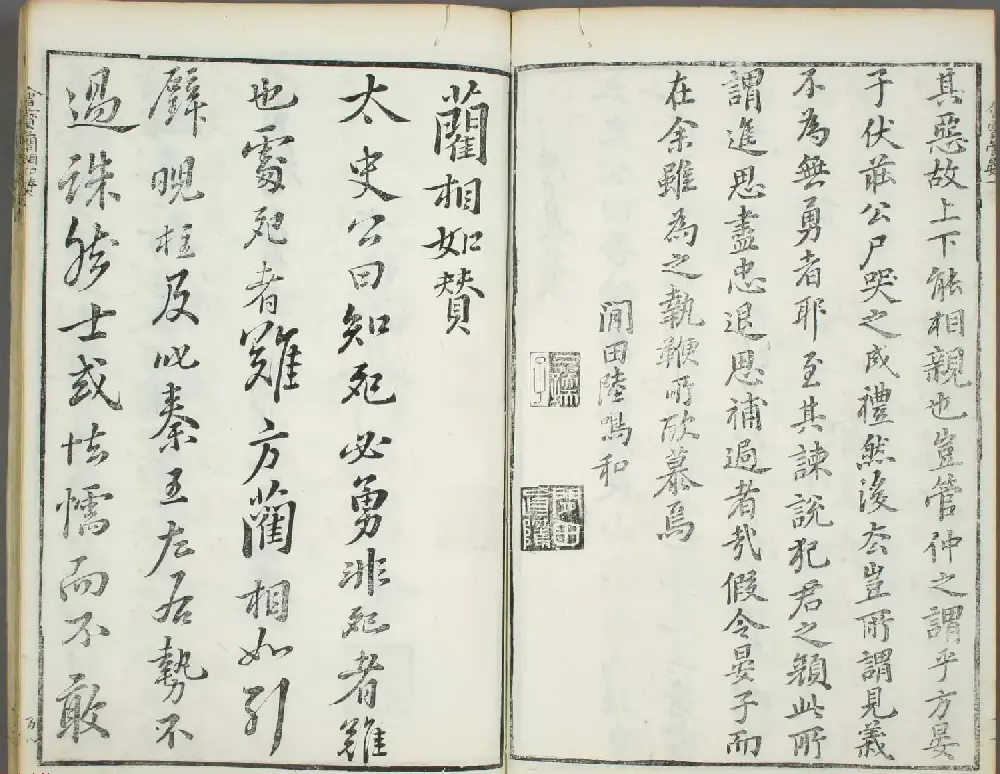 其惡故上下能相親也豈管仲之謂乎方晏
子伏莊公尸哭之成禮然後去豈所謂見義
不為無勇者耶至其諫說犯君之顏此所
謂進思盡忠退思補過者哉假令晏子而
在余雖為之執鞭所欣慕焉
閒田陸鳴和
藺相如贊
太史公曰知死必勇非死者難
也處死者難方藺相如引
璧睨柱及叱秦王左右勢不
過誅然士或怯懦而不敢